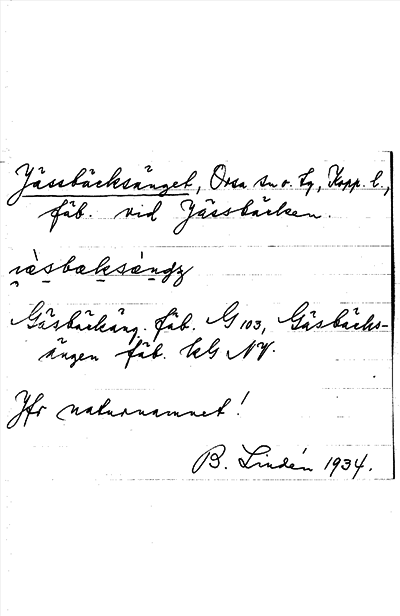 Jässbäcksänget, Orsa sn o. tg, Kopp. l.,
fäb. vid Jässbäcken.
Gäsbäckäng. fäb. G 103, Gäsbäcks-
ängen fäb. kG NV.
Jfr naturnamnet!
B. Lindén 1934.